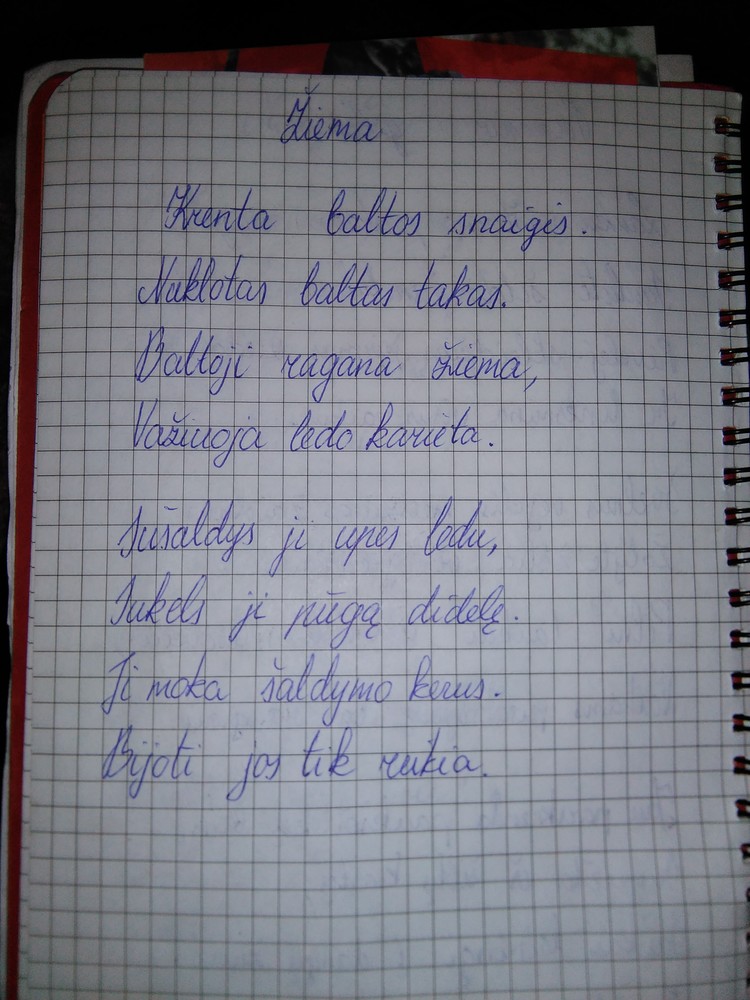 Žiema
Krenta baltos snaigės.
Naklotas baltas takas.
Baltoji ragana žiema,
Važiuoja ledo karieta.
Sušaldys ji upes ledu,
Sukels ji pūgą didelę.
Ji moka šaldymo kerus.
Bijoti jos tik reikia.